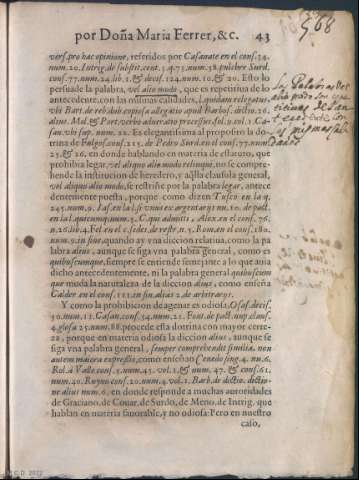 por Doña Maria Ferrer, &c. 43
568
vers. pro hac opinione, referidos por Casanate en el cons. 34.
num. 20. Intrig. de substit. cent. 1. q. 75. num. 38. pulchre Surd.
cons. 77. num. 24. lib. 1. & decis. 124. num. 10. & 20. Esto lo
persuade la palabra, vel alio modo, que es repetitiua de lo
antecedente, con las mismas calidades,
vbi Bart. de reb. dub. Barbos. dictio. 26.
alius. Mol. & Port. verbo aduocato
san. vbi sup. num. 22. Es elegantissima al proposito la do-
trina de Fulgos. cons. 215. de Pedro Surd. en el cons. 77. num.
25. & 26. en donde hablando en materia de estatuto, que
prohibia legar, vel alio quo modo relinque, no se compre-
hende la institucion de heredero, y aq̃lla clausula general,
vel aliquo alio modo, se restriñe por la palabra legar, antece
dentemente puesta, porque como dizen Tusco en la q.
26. lib. 4. Fel. en el c. sedes, de rescr. n. 5. Rom. en el cons. 180.
num. 9. in fine, quando ay vna diccion relatiua, como la pa
labra alius, aunque se siga vna palabra general, como es
quibuscumque, siempre se entiende semejante a lo que auia
dicho antecedentemente, ni la palabra general quibuscum
que muda la naturaleza de la diccion alius, como enseña
Calder. en el cons. 111. in fin. alias 2. de arbitrarijs.
Y como la prohibicion de agenar es odiosa, Osasc. decis.
30. num. 12. Casan. cons. 34. num. 21. Font. de pact. nup. claus.
4. glosa 25. num. 88. procede esta dotrina con mayor certe-
za, porque en materia odiosa la diccion alius, aunque se
siga vna palabra general, semper comprehendit similia, non
autem maiora expressis, como enseñan Cenedo sing. 4. nu. 6.
Rol. à Valle cons. 3. num. 45. vol. 1. & num. 47. & cons. 61.
num. 40. Ruyno cons. 20. num. 4. vol. 1. Barb. de dictio. dictio-
ne alius num. 6. en donde responde a muchas autoridades
de Graciano, de Couar. de Surdo, de Meno. de Intrig. que
hablan en materia fauorable, y no odiosa: Pero en nuestro
caso,